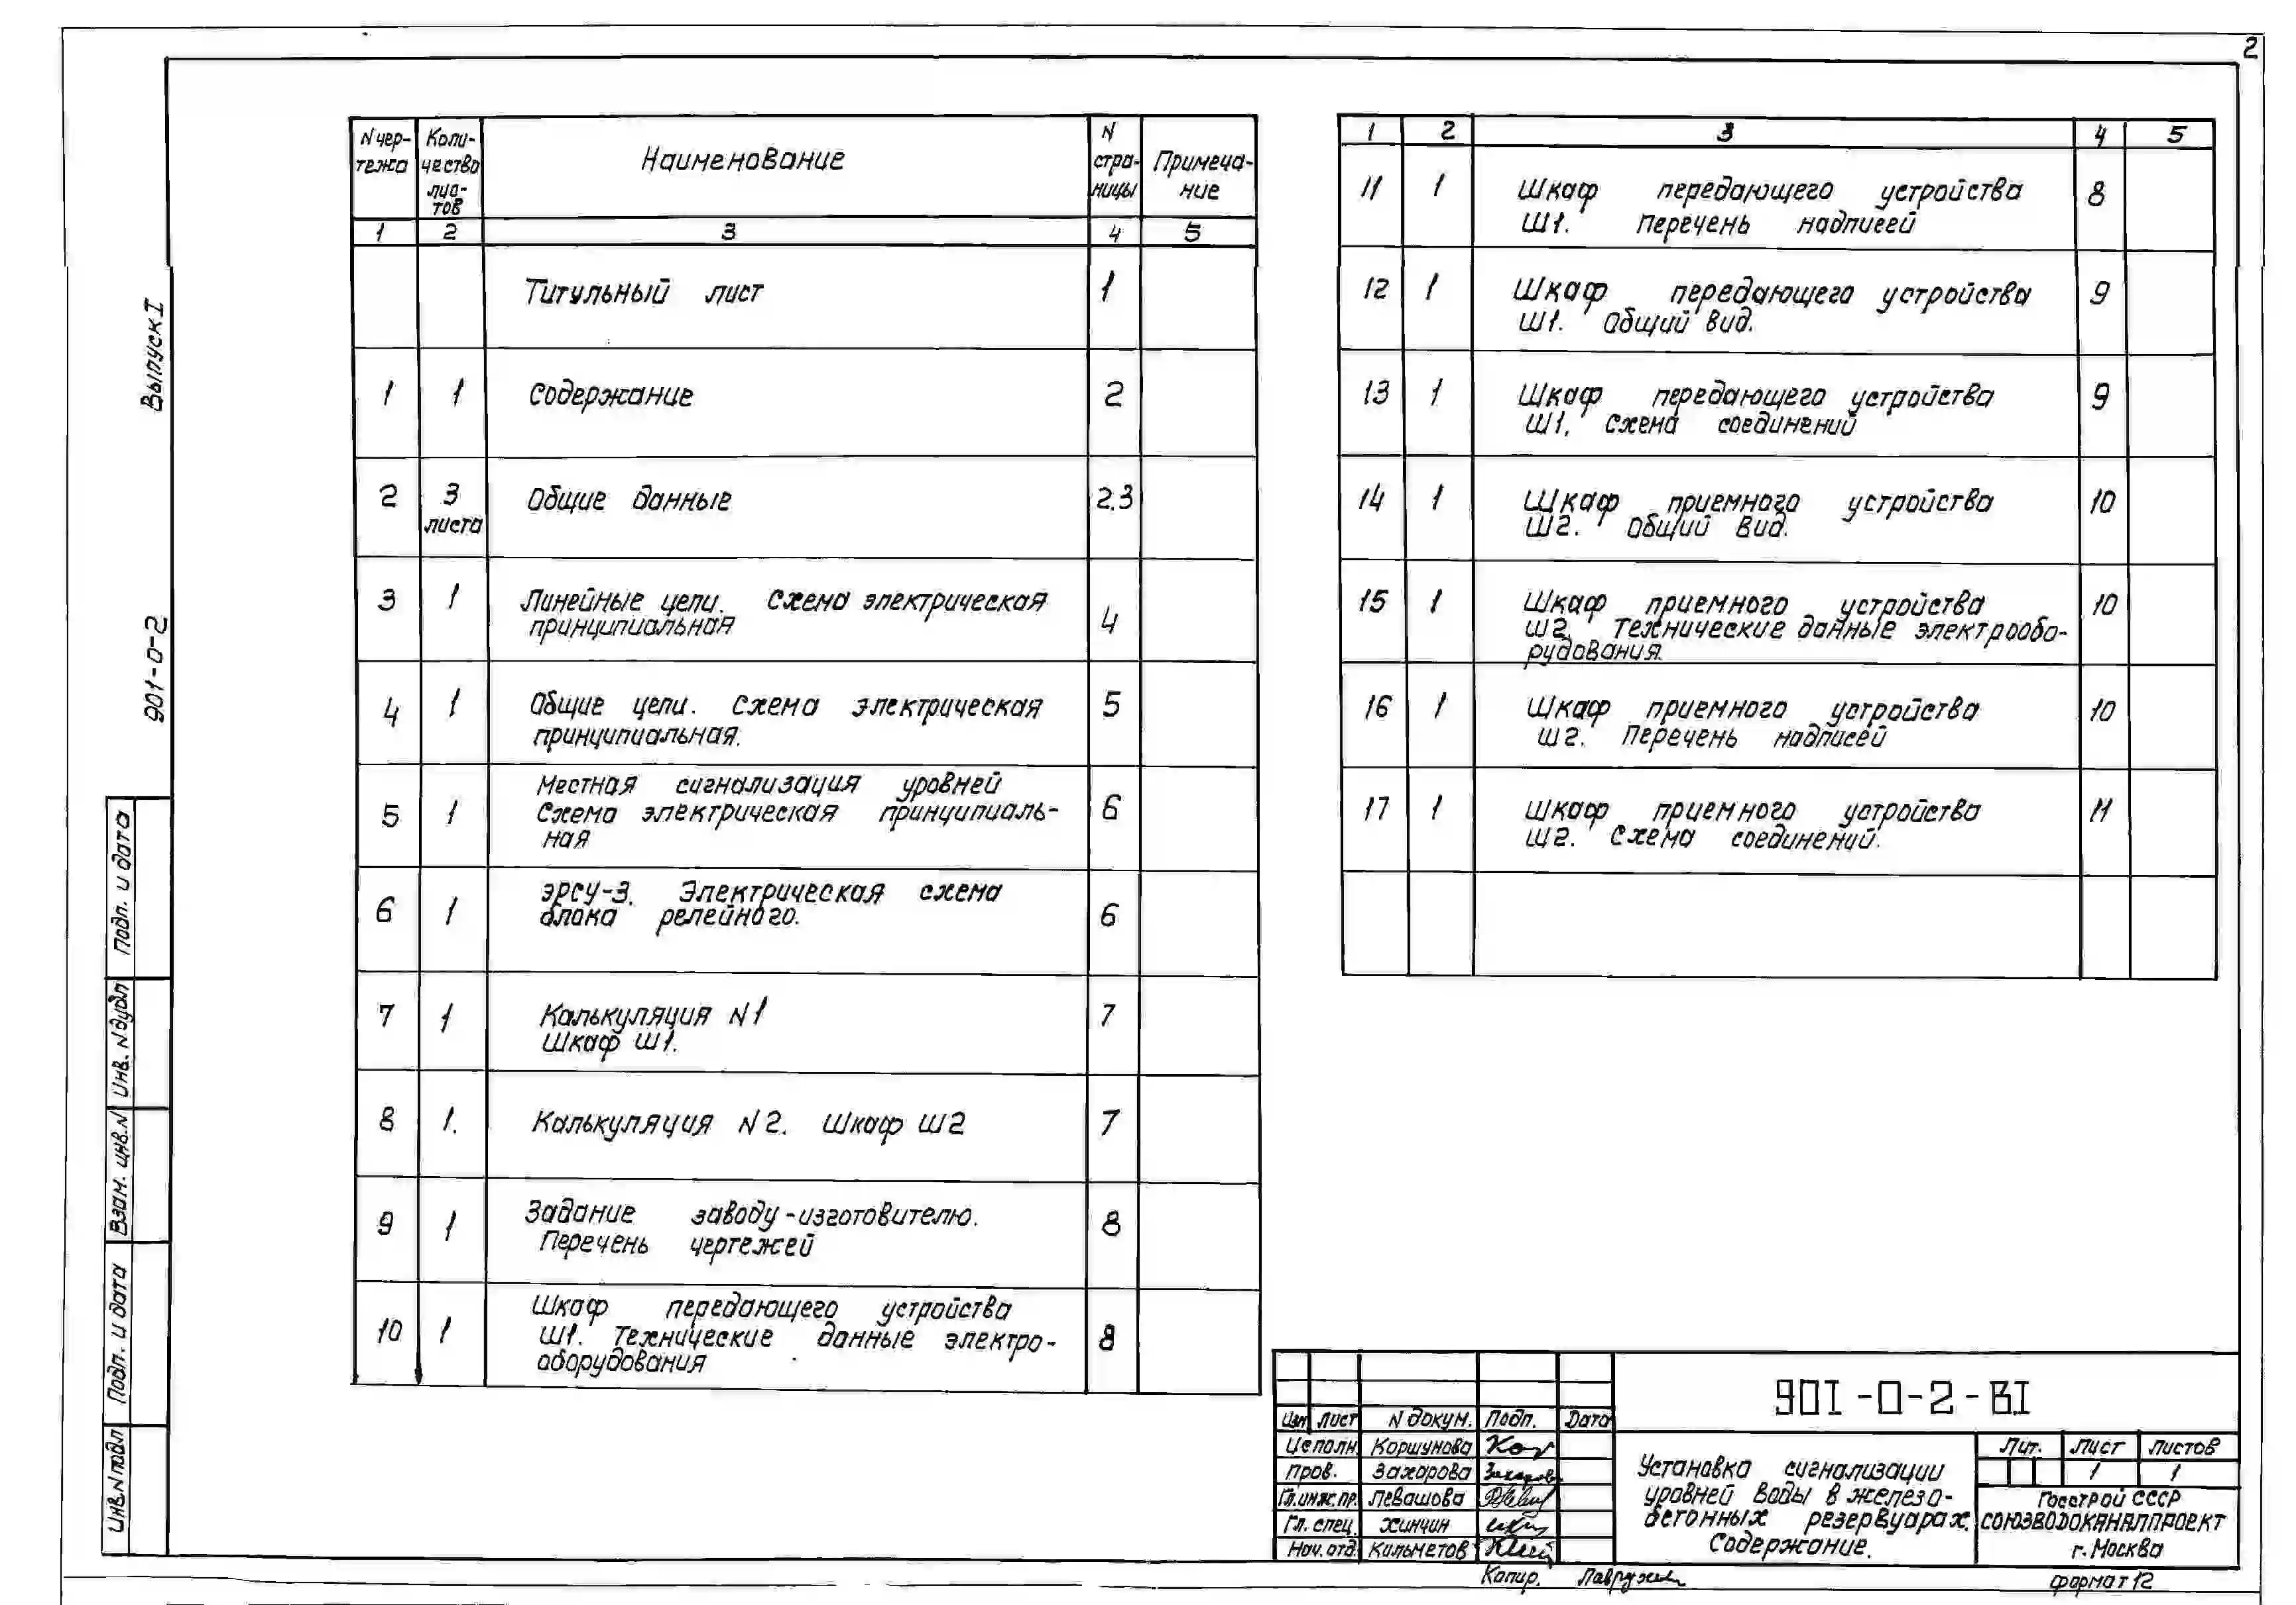 2
Выпуск I
901-0-2
N чер-
тежа
Коли-
чество
лис-
тов
Наименование
N
стра-
ницы
Примеча-
ние
1 2 3 4 5
Титульный лист 1
1 1 Содержание 2
2 3 листа Общие данные 2.3
3 1 Линейные цепи. Схема электрическая
принципиальная 4
4 1 Общие цепи. Схема электрическая 5
принципиальная.
Местная сигнализация уровней
5 1 Схема электрическая принципиаль- 6
ная
6 1 ЭРСУ-3. Электрическая схема
блока релейного. 6
7 1 Калькуляция N1 7
Шкаф Ш1.
8 1. Калькуляция N2. Шкаф Ш2 7
9 1 Задание заводу-изготовителю. 8
Перечень чертежей
Шкаф передающего устройства
10 1 Ш1. Технические данные электро- 8
оборудования
1 2 3 4 5
11 1 Шкаф передающего устройства 8
Ш1. Перечень надписей
12 1 Шкаф передающего устройства 9
Ш1. Общий вид.
13 1 Шкаф передающего устройства 9
Ш1. Схема соединений
14 1 Шкаф приемного устройства 10
Ш2. Общий вид.
15 1 Шкаф приемного устройства 10
Ш2. Технические данные электрообо-
рудования.
16 1 Шкаф приемного устройства 10
Ш2. Перечень надписей
17 1 Шкаф приемного устройства 11
Ш2. Схема соединений.
Подп. и дата
Инв. N дубл
Взам. инв. N
Подп. и дата
Инв. N подл
901-0-2-В.I
Изм Лист N докум. Подп. Дата
Исполн Коршунова Кор
Пров. Захарова Захарова
Гл.инж.пр. Левашова
Гл. спец. Хинчин
Нач. отд. Кильметов
Установка сигнализации
уровней воды в железо-
бетонных резервуарах.
Содержание.
Лит. Лист Листов
1 1
Госстрой СССР
СОЮЗВОДОКАНАЛПРОЕКТ
г. Москва
Копир.
формат 12